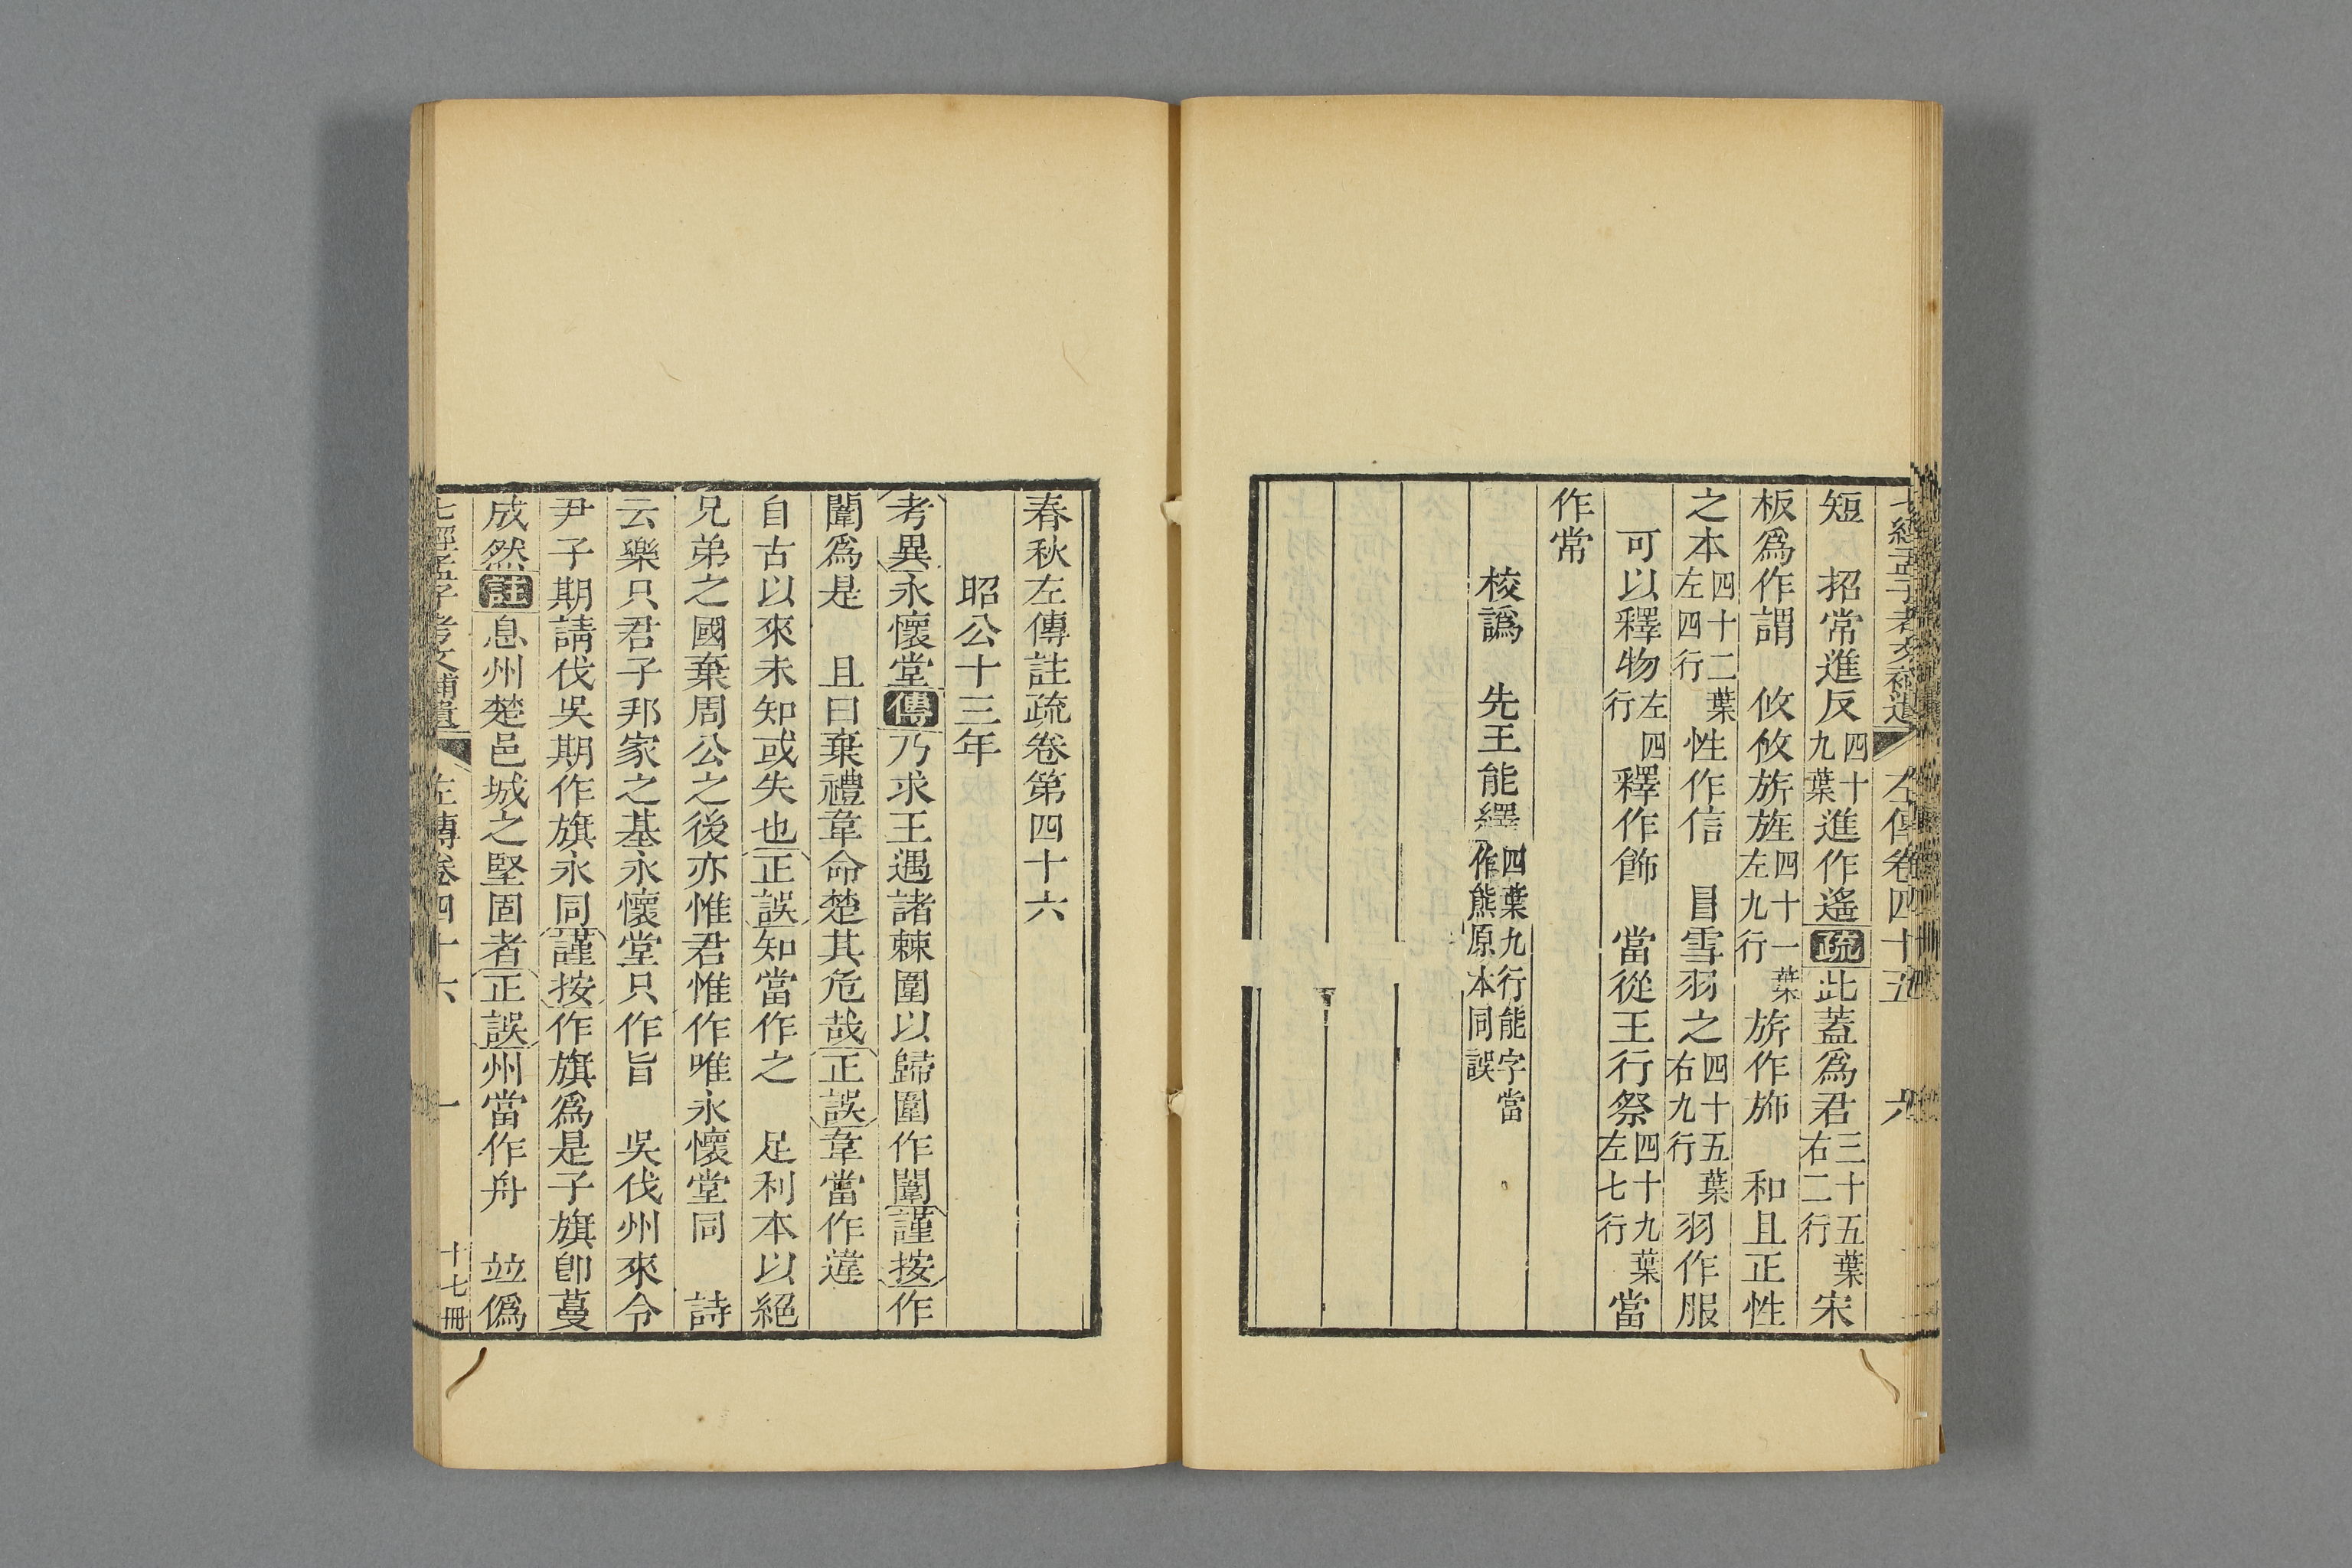 七經孟子考文補遺 左傳卷四十五 六
短 招常進反四十九葉進作遙疏此蓋為君三十五葉右二行宋
板為作謂 攸攸旂旌四十一葉左九行旂作斾 和且正性
之本四十二葉左四行性作信 目雪羽之四十五葉右九行羽作服
可以釋物左四行釋作飾 當從王行祭四十九葉左七行當
作常
校譌 先王能繹四葉九行能字當作熊原本同誤
春秋左傳註疏卷第四十六
昭公十三年
考異永懷堂傳乃求王遇諸棘圍以歸圍作闈謹按作
闈爲是 且曰棄禮韋命楚其危哉正誤韋當作違
自古以來未知或失也正誤知當作之 足利本以絕
兄弟之國棄周公之後亦惟君惟作唯永懷堂同 詩
云樂只君子邦家之基永懷堂只作旨 吳伐州來令
尹子期請伐吳期作旗永同謹按作旗爲是子旗卽蔓
成然註息州楚邑城之堅固者正誤州當作舟 竝僞
七經孟子考文補遺 左傳卷四十六 一 十七冊